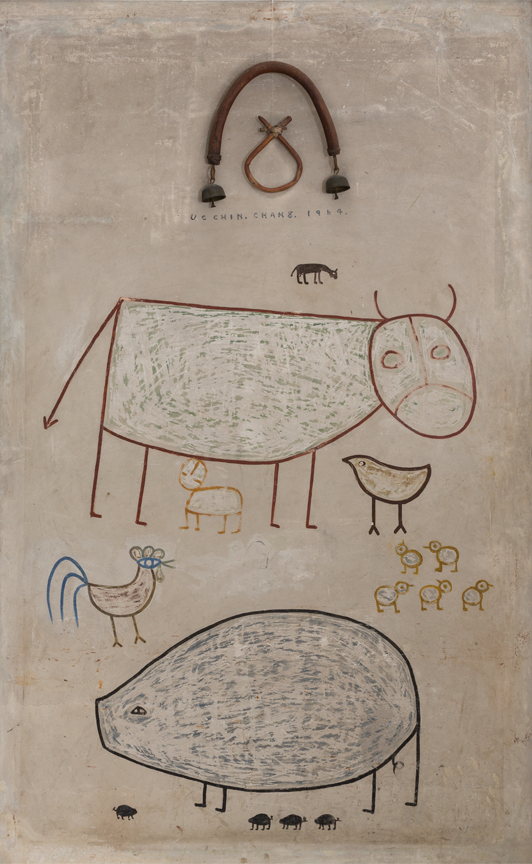 UCCHIN. CHANG. 1964.